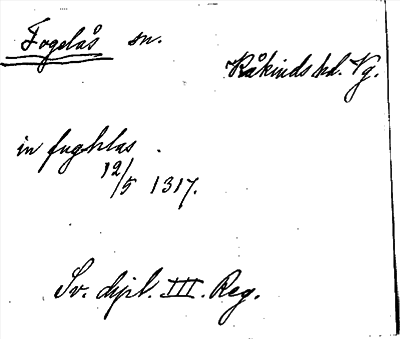 Fogelås sn.
Kåkinds hd. Vg.
in fughlas
12/5 1317.
Sv. dipl. III. Reg.